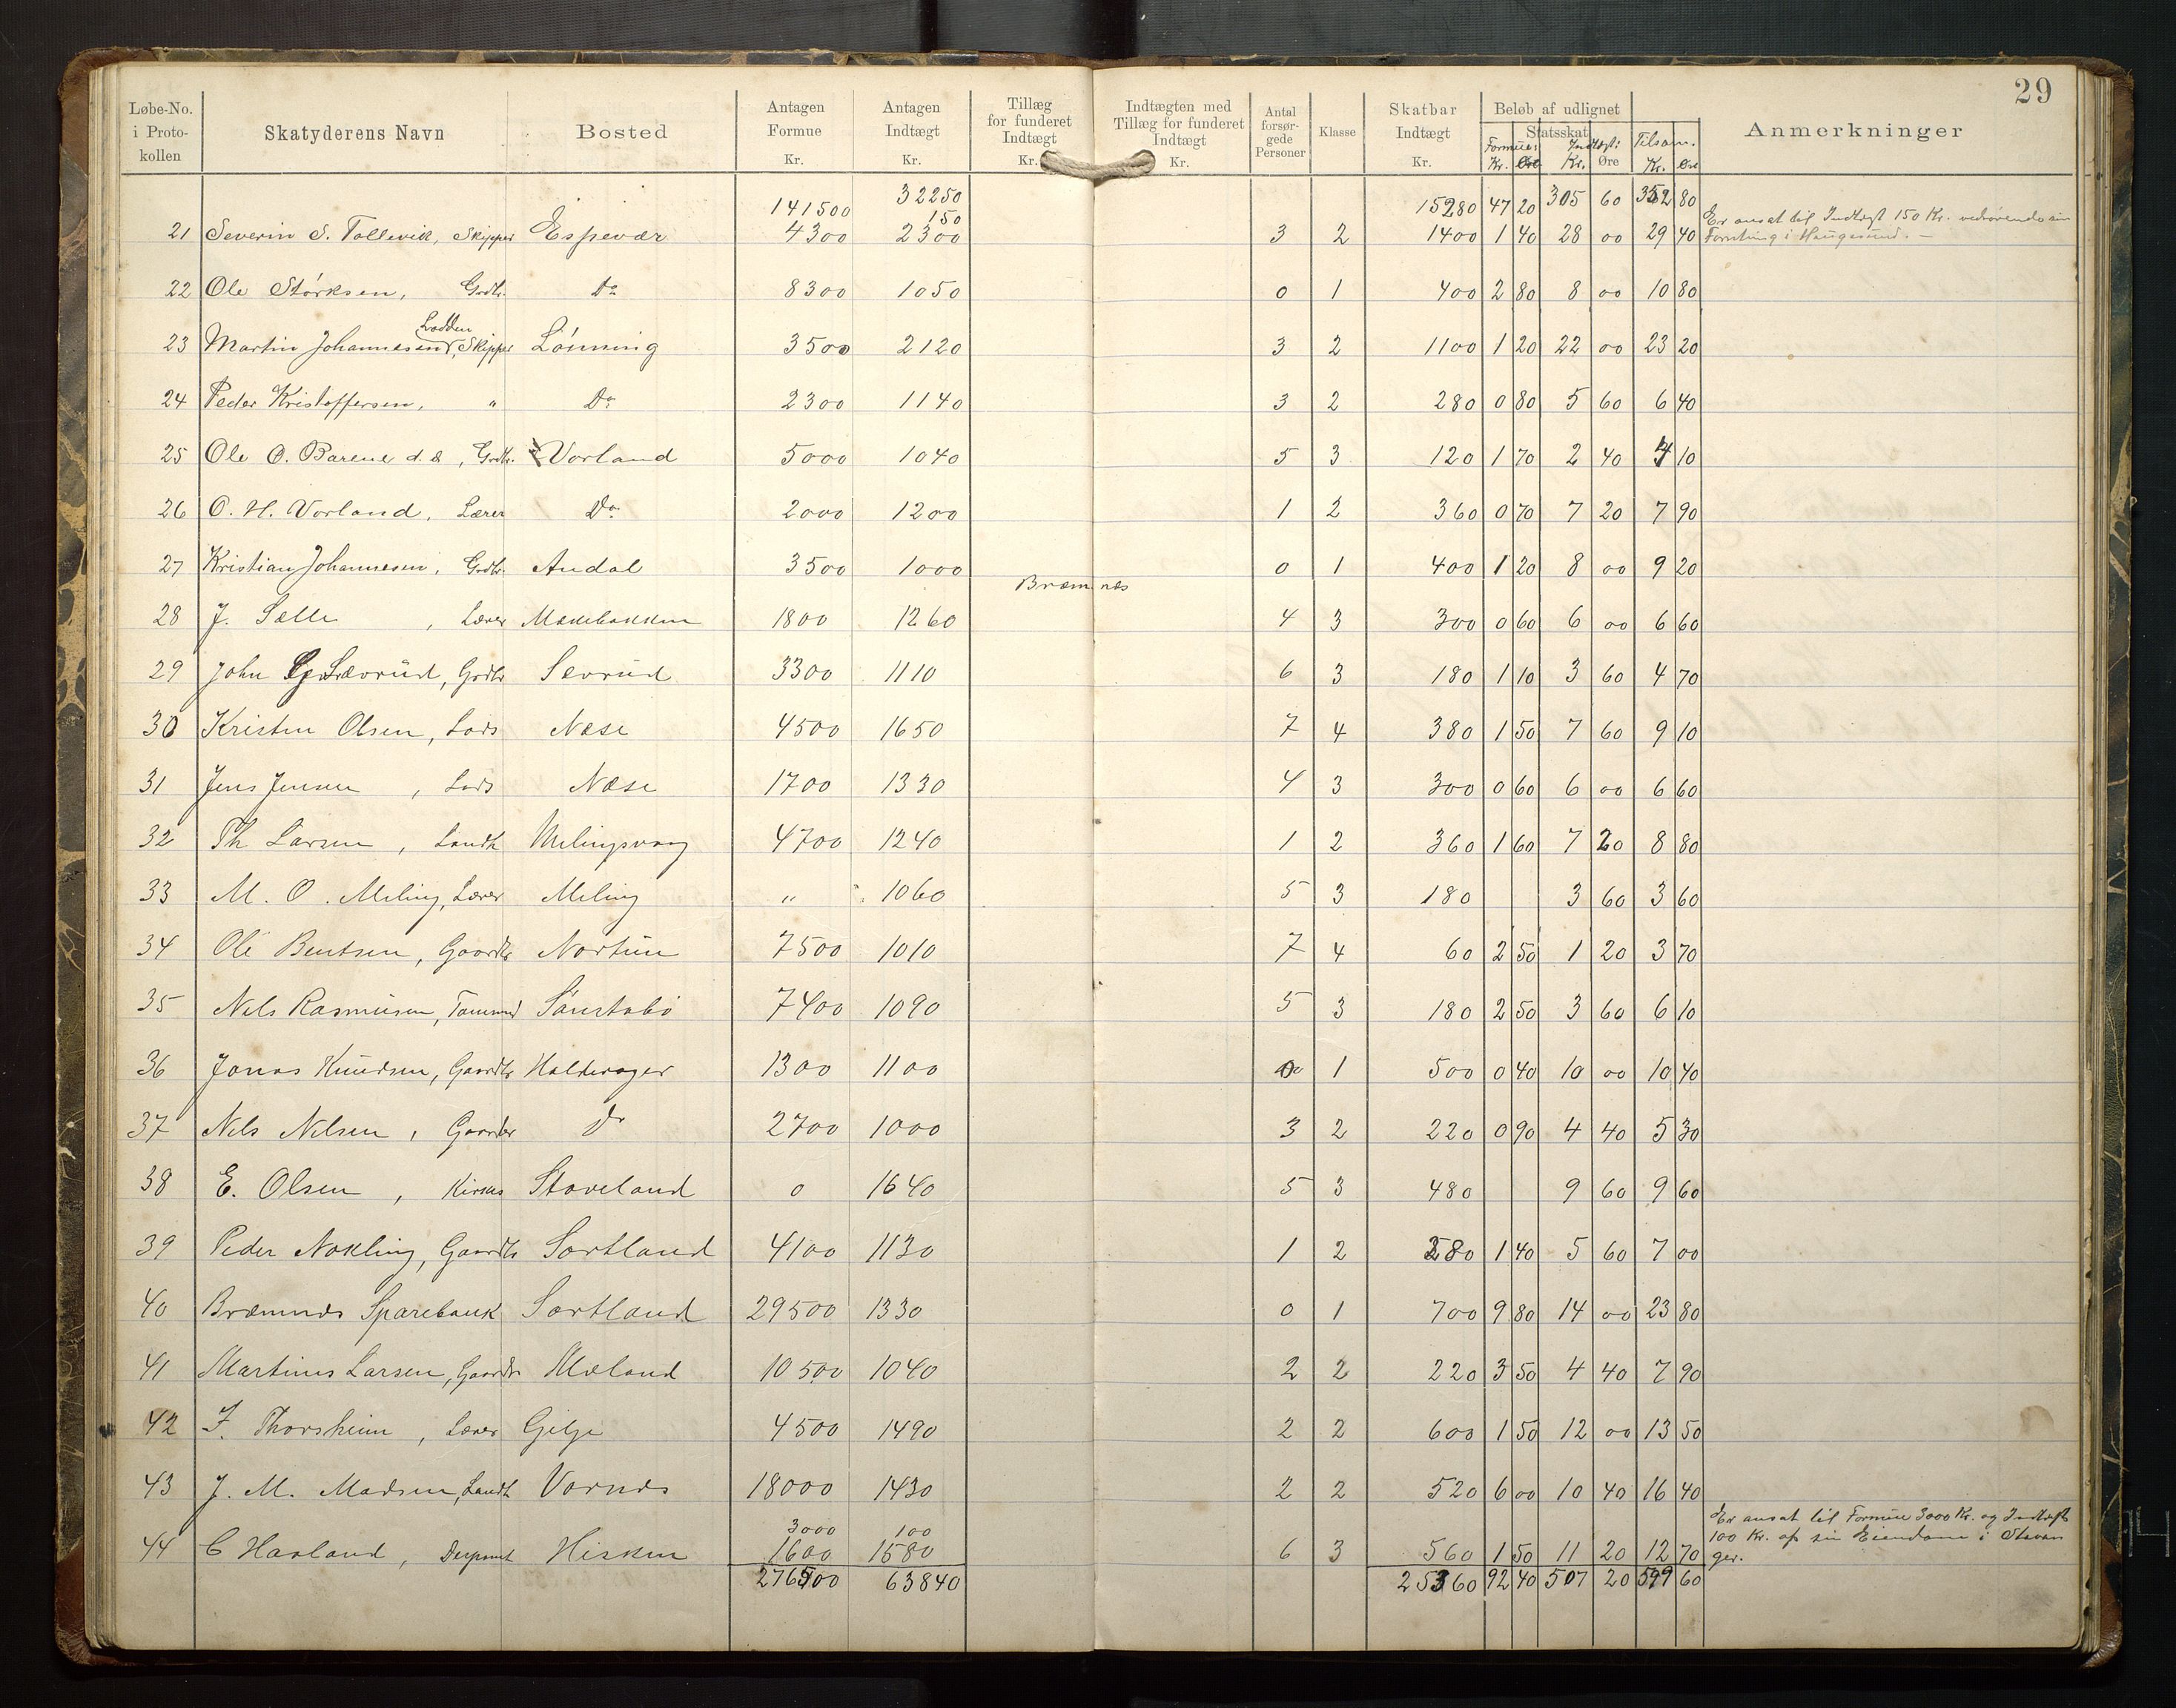 29
Løbe-No. i Proto-kollen | Skatyderens Navn | Bosted | Antagen Formue Kr. | Antagen Indtægt Kr. | Tillæg for funderet Indtægt Kr. | Indtægten med Tillæg for funderet Indtægt Kr. | Antal forsør-gede Personer | Klasse | Skatbar Indtægt Kr. | Beløb af udlignet Statsskat Formue: Kr. Øre | Indtægt: Kr. Øre | Tilsam. Kr. Øre | Anmerkninger
141500 | 32250 | 15280 | 47 20 | 305 60 | 352 80
150 | Er ansat til Indtægt 150 Kr. vedrørende sin
21 | Severin S. Tollevik, Skipper | Espevær | 4300 | 2300 | 3 | 2 | 1400 | 1 40 | 28 00 | 29 40 | Forretning i Haugesund. –
22 | Ole Størksen, Grdbr. | Do | 8300 | 1050 | 0 | 1 | 400 | 2 80 | 8 00 | 10 80
23 | Martin Johannesen Lodden, Skipper | Lønning | 3500 | 2120 | 3 | 2 | 1100 | 1 20 | 22 00 | 23 20
24 | Peder Kristoffersen, " | Do | 2300 | 1140 | 3 | 2 | 280 | 0 80 | 5 60 | 6 40
25 | Ole O. Barene d. æ, Grdbr. | Vorland | 5000 | 1040 | 5 | 3 | 120 | 1 70 | 2 40 | 4 10
26 | O. H. Vorland, Lærer | Do | 2000 | 1200 | 1 | 2 | 360 | 0 70 | 7 20 | 7 90
27 | Kristian Johannesen, Grdbr. | Andal | 3500 | 1000 | 0 | 1 | 400 | 1 20 | 8 00 | 9 20
Bræmnes
28 | J. Sælle, Lærer | 1800 | 1260 | 4 | 3 | 300 | 0 60 | 6 00 | 6 60
29 | John Sævrud, Grdbr | Sevrud | 3300 | 1110 | 6 | 3 | 180 | 1 10 | 3 60 | 4 70
30 | Kristen Olsen, Lods | Næse | 4500 | 1650 | 7 | 4 | 380 | 1 50 | 7 60 | 9 10
31 | Jens Jensen, Lods | Næse | 1700 | 1330 | 4 | 3 | 300 | 0 60 | 6 00 | 6 60
32 | Th Larsen, Landh | Melingsvaag | 4700 | 1240 | 1 | 2 | 360 | 1 60 | 7 20 | 8 80
33 | M. O. Meling, Lærer | Meling | " | 1060 | 5 | 3 | 180 | 3 60 | 3 60
34 | Ole Bentsen, Gaardbr | Nortun | 7500 | 1010 | 7 | 4 | 60 | 2 50 | 1 20 | 3 70
35 | Nels Rasmusen, | Sønstabø | 7400 | 1090 | 5 | 3 | 180 | 2 50 | 3 60 | 6 10
36 | Jonas Knudsen, Gaardbr | Halderager | 1300 | 1100 | 0 | 1 | 500 | 0 40 | 10 00 | 10 40
37 | Nels Nelsen, Gaardbr | Do | 2700 | 1000 | 3 | 2 | 220 | 0 90 | 4 40 | 5 30
38 | E. Olsen, | Staveland | 0 | 1640 | 5 | 3 | 480 | 9 60 | 9 60
39 | Peder Nokling, Gaardbr | Sortland | 4100 | 1130 | 1 | 2 | 280 | 1 40 | 5 60 | 7 00
40 | Bræmnes Sparebank | Sortland | 29500 | 1330 | 0 | 1 | 700 | 9 80 | 14 00 | 23 80
41 | Martinus Larsen, Gaardbr | Mæland | 10500 | 1040 | 2 | 2 | 220 | 3 50 | 4 40 | 7 90
42 | Thorsheim, Lærer | Gilje | 4500 | 1490 | 2 | 2 | 600 | 1 50 | 12 00 | 13 50
43 | J. M. Madsen, Landh | Vornes | 18000 | 1430 | 2 | 2 | 520 | 6 00 | 10 40 | 16 40
3000 | 100 | Er ansat til Formue 3000 Kr. og Indtægt
100 Kr. af sin Eiendom i Stavan
44 | C Havland, | Hisken | 1600 | 1580 | 6 | 3 | 560 | 1 50 | 11 20 | 12 70 | ger.
276500 | 63840 | 25360 | 92 40 | 507 20 | 599 60